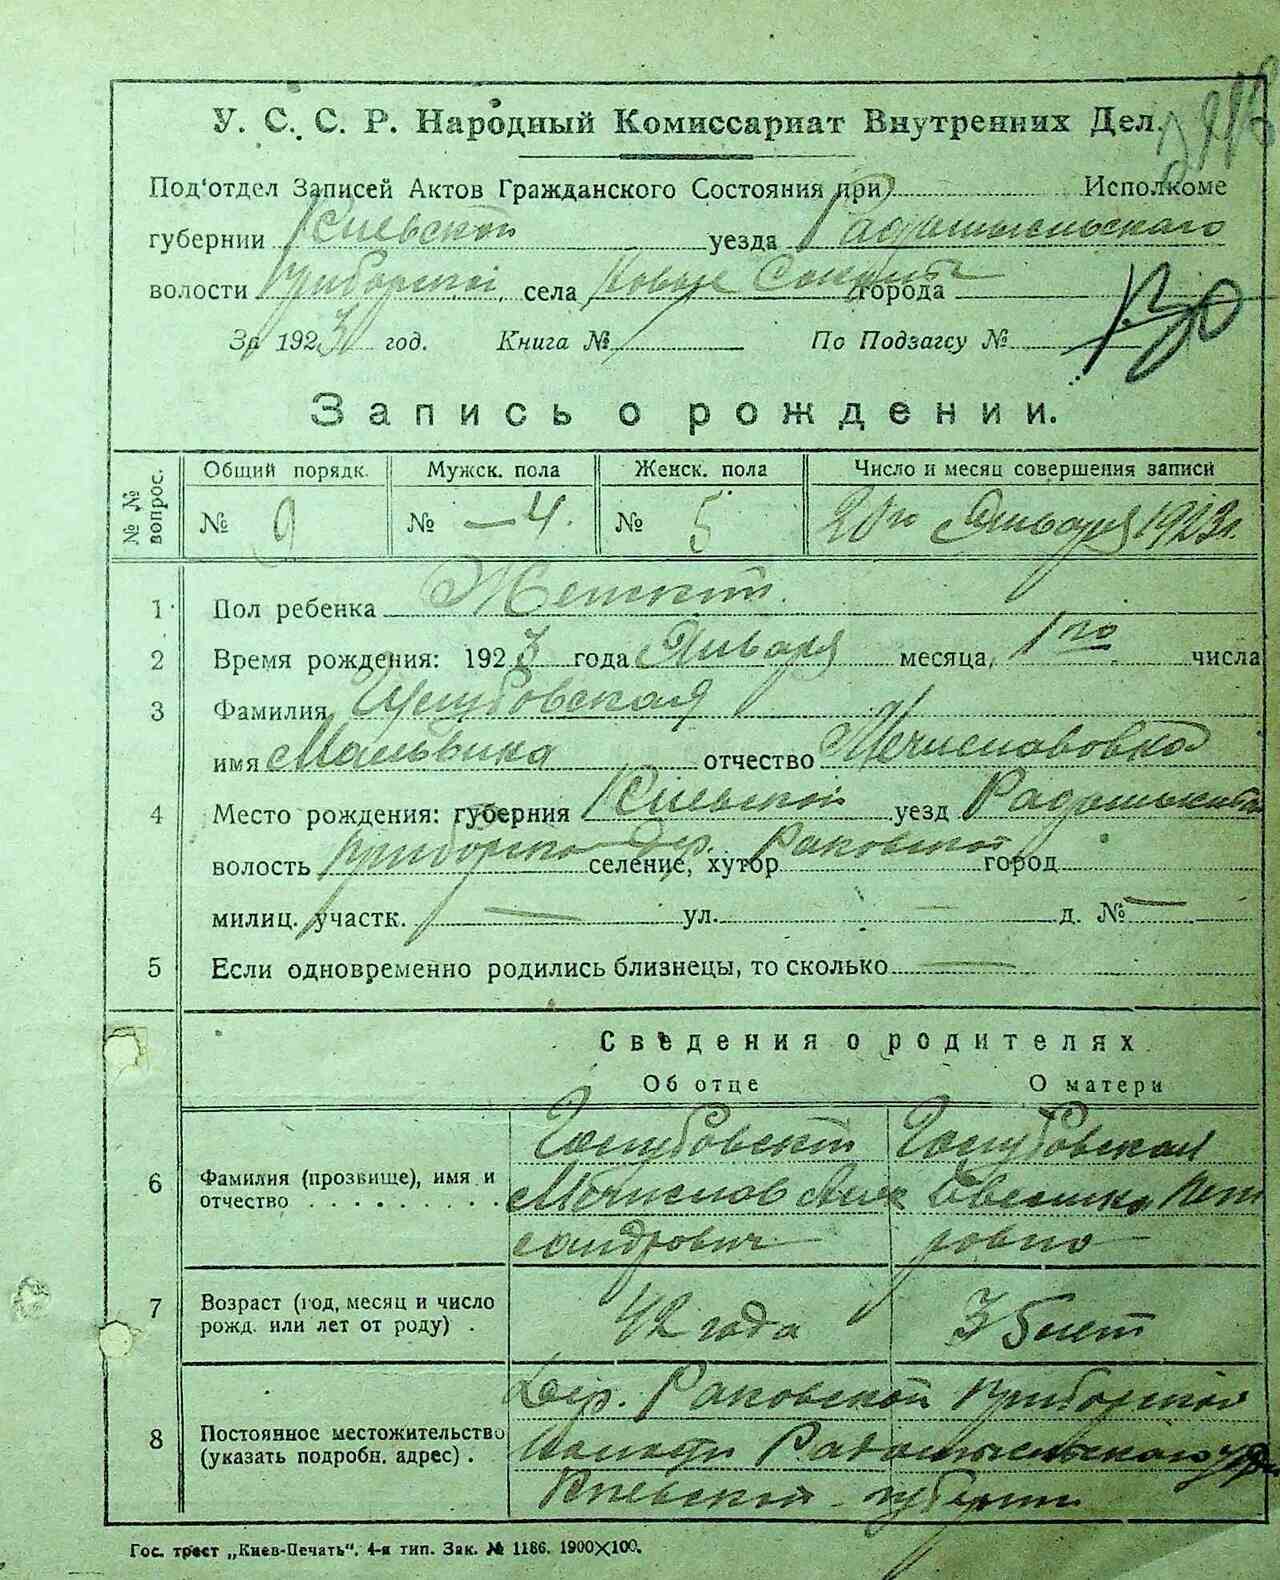 У. С. С. Р. Народный Комиссариат Внутренних Дел.
Под‘отдел Записей Актов Гражданского Состояния при Исполкоме
губернии Киевской уезда Радомысльскаго
волости Приборской села Новые города
130
За 1923 год. Книга № По Подзагсу №
Запись о рождении.
№ № вопрос.
Общий порядк. Мужск. пола Женск. пола Число и месяц совершения записи
№ 9 № — 4. № 5 20го Января 1923г.
1 Пол ребенка Женский.
2 Время рождения: 1923 года Января месяца, 1го числа
3 Фамилия
имя Мальвина отчество Мечиславовна
4 Место рождения: губерния Киевской уезд
волость Приборской селение, хутор дер. Раковской город
милиц. участк. — ул. — д. № —
5 Если одновременно родились близнецы, то сколько —
Сведения о родителях
Об отце О матери
6 Фамилия (прозвище), имя и отчество . . . . . . . . .
Голубовский Голубовская
Мечислав Алек Пет
сандрович ровна
7 Возраст (год, месяц и число рожд. или лет от роду) .
42 года 35 лет
8 Постоянное местожительство (указать подробн. адрес) .
Дер. Раковской Приборской
волости Радомысльского у.
Киевской губернии
Гос. трест „Киев-Печать“. 4-я тип. Зак. № 1186. 1900×100.